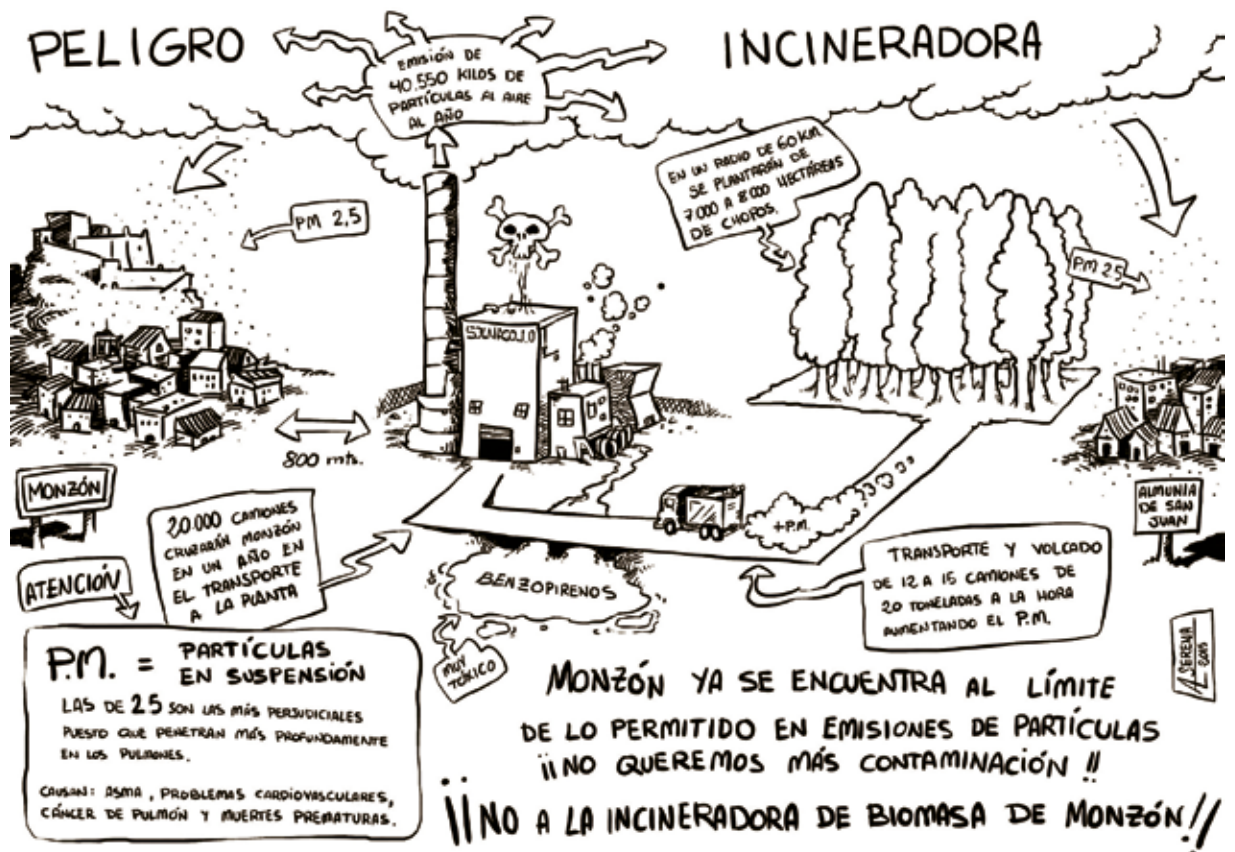 PELIGRO
INCINERADORA
EMISIÓN DE
40.550 KILOS DE
PARTÍCULAS AL AIRE
AL AÑO
EN UN RADIO DE 60 KM
SE PLANTARÁN DE
7.000 A 8.000 HECTÁREAS
DE CHOPOS.
PM 2,5
P.M 25
800 mts.
MONZÓN
ALMUNIA
DE SAN
JUAN
20.000 CAMIONES
CRUZARÁN MONZÓN
EN UN AÑO EN
EL TRANSPORTE
A LA PLANTA
+P.M.
BENZOPIRENOS
MUY
TÓXICO
TRANSPORTE Y VOLCADO
DE 12 A 15 CAMIONES DE
20 TONELADAS A LA HORA
AUMENTANDO EL P.M.
ATENCIÓN
P.M. = PARTÍCULAS
EN SUSPENSIÓN
LAS DE 25 SON LAS MÁS PERJUDICIALES
PUESTO QUE PENETRAN MÁS PROFUNDAMENTE
EN LOS PULMONES.
CAUSAN: ASMA, PROBLEMAS CARDIOVASCULARES,
CÁNCER DE PULMÓN Y MUERTES PREMATURAS.
A. SERENA
2015
MONZÓN YA SE ENCUENTRA AL LÍMITE
DE LO PERMITIDO EN EMISIONES DE PARTÍCULAS
¡¡NO QUEREMOS MÁS CONTAMINACIÓN!!
¡¡NO A LA INCINERADORA DE BIOMASA DE MONZÓN!!